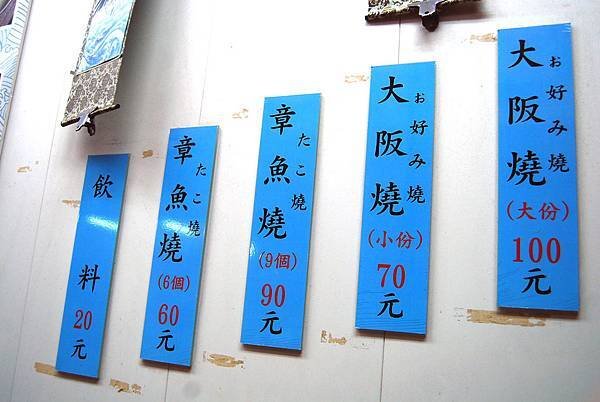 大阪燒
お好み燒
(大份)
100元
大阪燒
お好み燒
(小份)
70元
章魚燒
たこ燒
(9個)
90元
章魚燒
たこ燒
(6個)
60元
飲料
20元